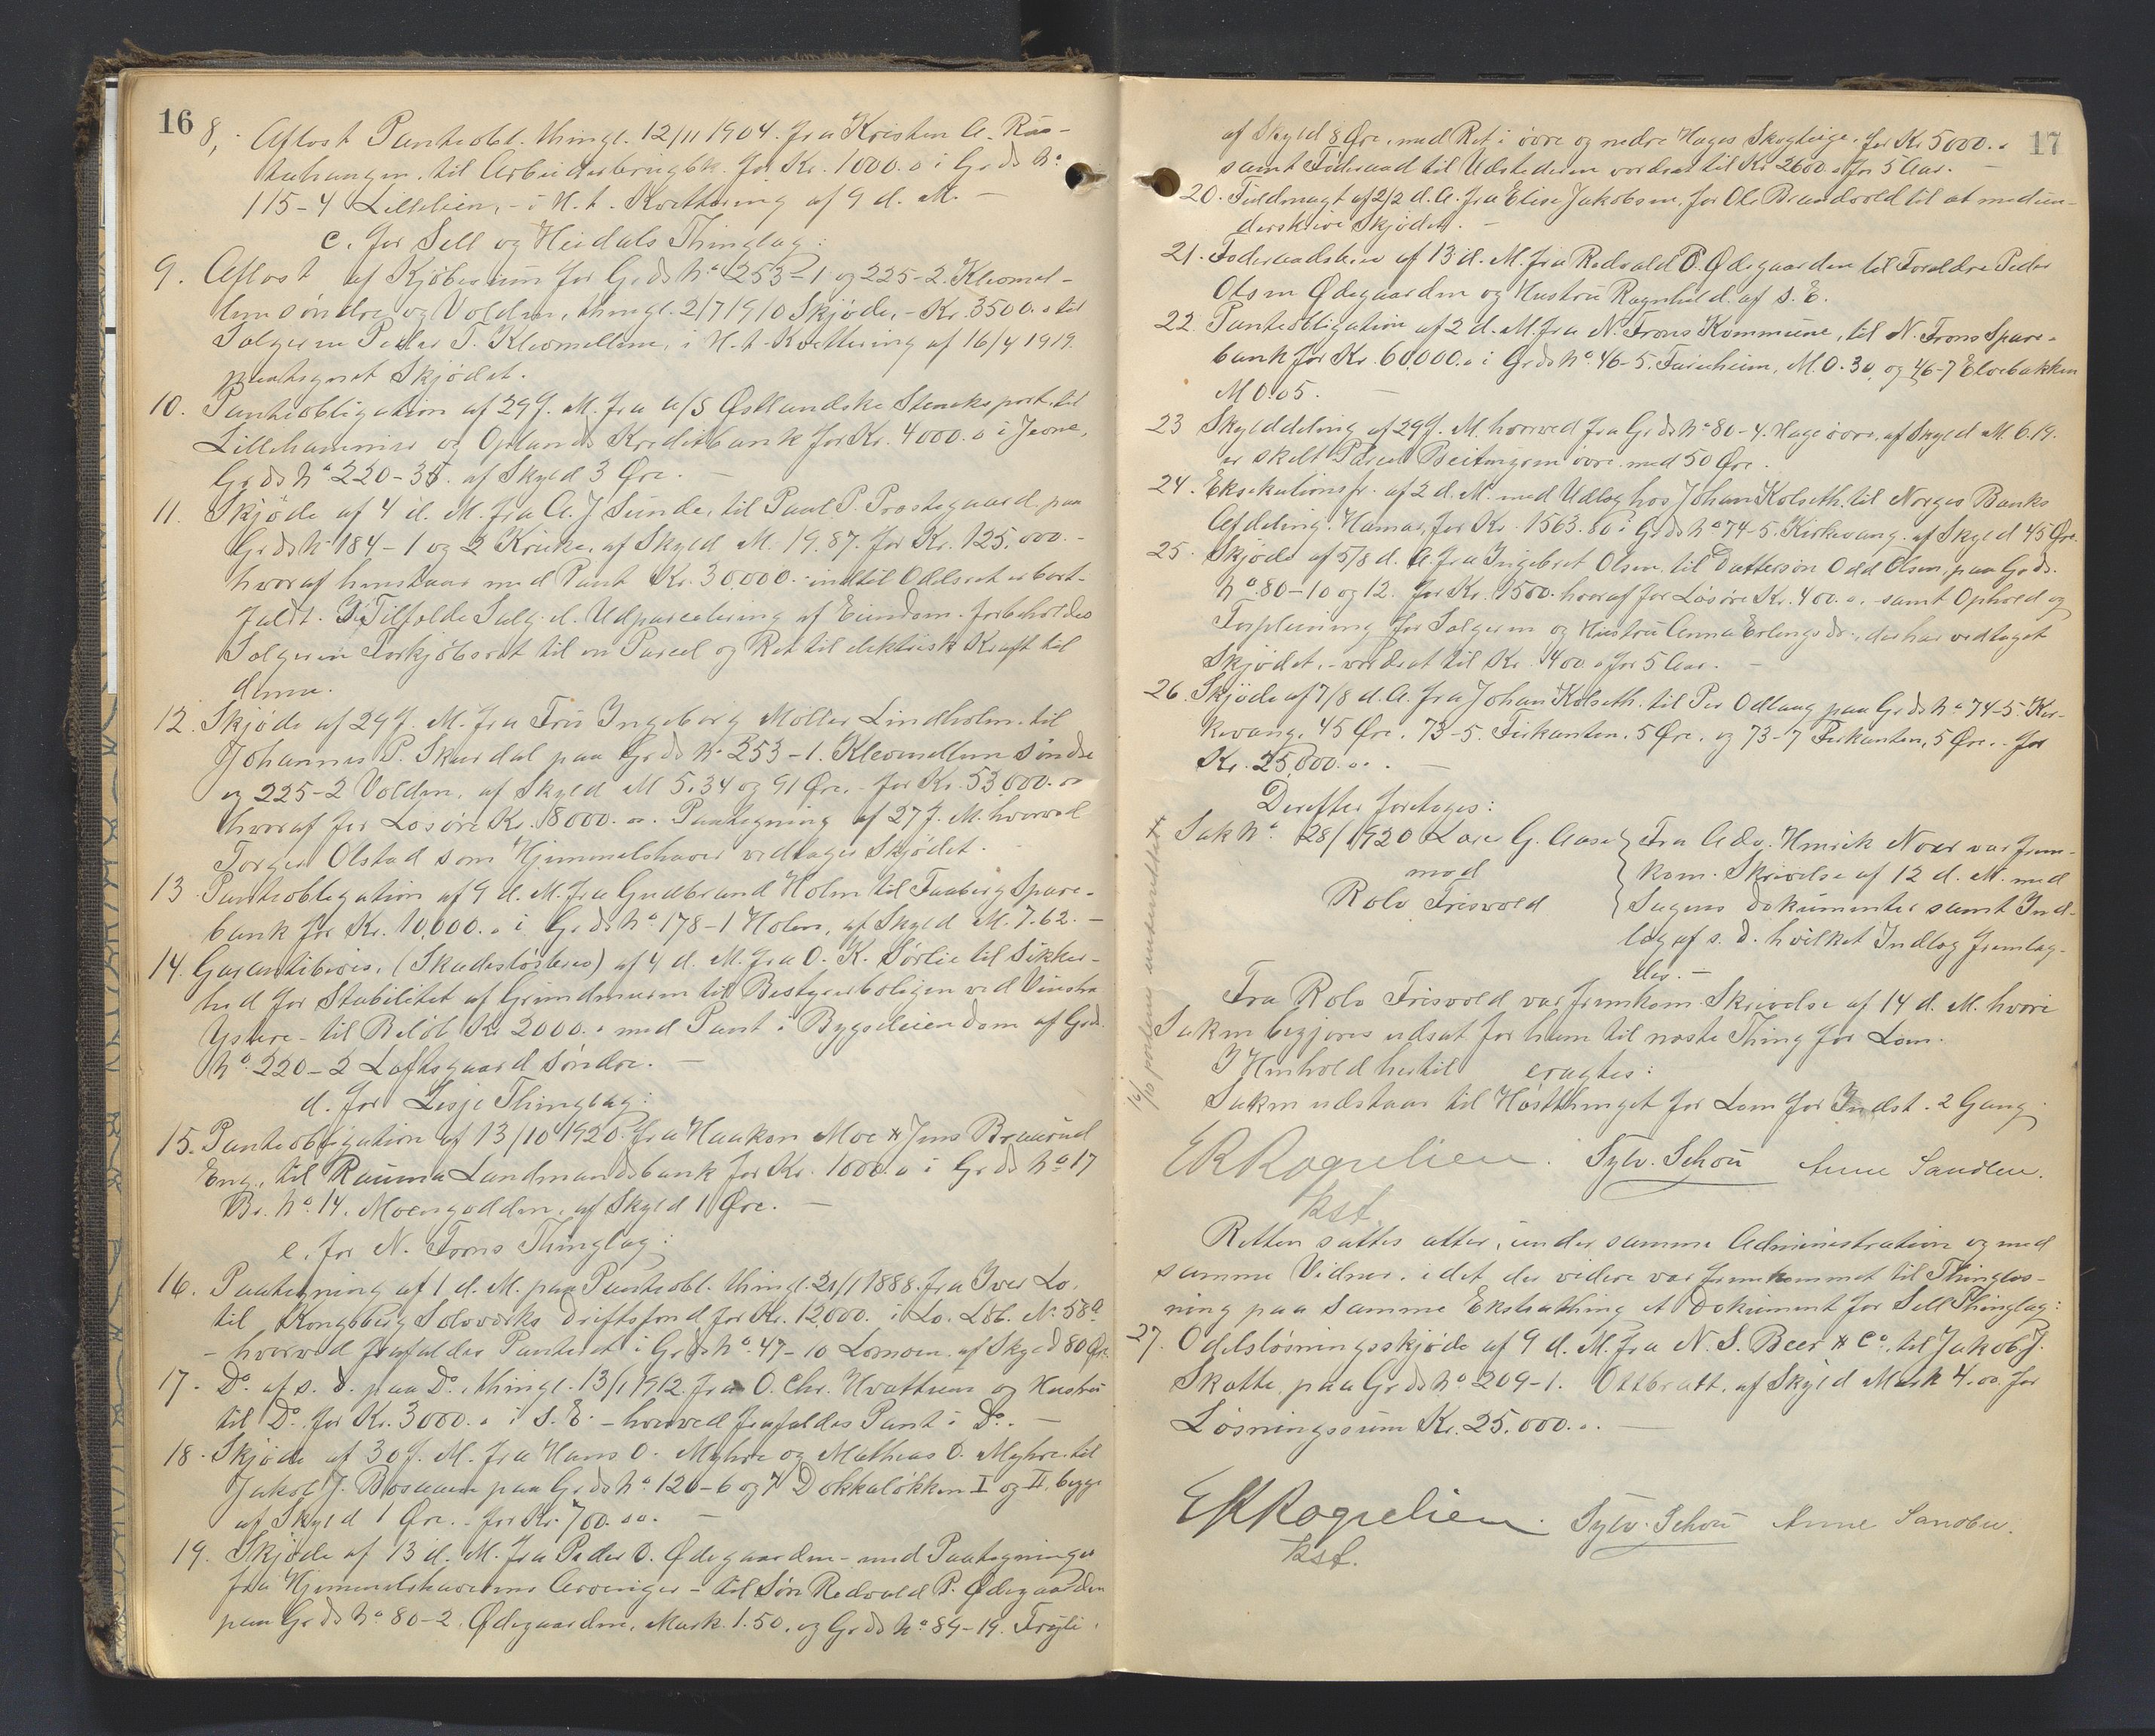 16
8, Aflöst Panteobl. thingl. 12/11 1904. fra Kristen A. Rus-
tuhaugen, til Arbeiderbrugbk. for Kr. 1000.0 i Grds No
115-4 Lillelien, - i H. t. Kvittering af 9 d. M. -
c. for Sell og Heidals Thinglag:
9. Aflöst af Kjöbesum for Grds No 253-1 og 225-2. Kleivmel-
lum söndre og Volden, thingl. 2/7 1910 Skjöde, - Kr. 3500.0 til
Sælgeren Peder T. Kleivmellem, i H. t. Kvittering af 16/4 1919.
paategnet Skjödet.
10. Panteobligation af 29 f. M. fra A/S Östlandske Steneksport, til
Lillehammer og Oplands Kreditbank for Kr. 4000.0 i Jevne,
Grds No 220-35. af Skyld 3 Øre. -
11. Skjöde af 4 d. M. fra A. J Sunde, til Paul P. Prestegaard, paa
Grds No 184-1 og 2 Kruke, af Skyld M. 19.87. for Kr. 125,000. -
hvoraf henstaar med Pant Kr. 30,000. - indtil Odelsret er bort-
faldt. I Tilfælde Salg el. Udparcelering af Eiendom. forbeholdes
Sælgeren Forkjöbsret til en Parcel og Ret til elektrisk Kraft til
denne.
12. Skjöde af 29 f. M. fra Fru Ingeborg Möller Lindholm. til
Johannes P. Skurdal paa Grds No 253-1. Kleivmellum Söndre
og 225-2 Volden, af Skyld M 5.34 og 91 Øre. - for Kr. 53,000.00
hvoraf for Lösöre Kr. 18000.00. Paategning af 27 f. M. hvorved
Torger Olstad som Hjemmelshaver vedtager Skjödet. -
13. Panteobligation af 9 d. M. fra Gudbrand Holm til Faaberg Spare-
bank for Kr. 10,000.0 i Grds No 178-1 Holm, af Skyld M. 7.62. -
14. Garantibevis. (Skadeslösbrev) af 4 d. M. fra O. K. Sörlie til Sikker-
hed for Stabilitet af Grundmuren til Bestyrerboligen ved Vinstra
Ysteri - til Belöb Kr. 2000.0 med Pant i Bygseleiendom af Grds.
No 220-2 Loftsgaard söndre. -
d. for Lesje Thinglag:
15. Panteobligation af 13/10 1920. fra Haakon Moe & Jens Braarud
Eng, til Rauma Landmandsbank for Kr. 1000.0 i Grds No 17
Br. No 14. Moengodden, af Skyld 1 Øre. -
e. for N. Frons Thinglag:
16. Paategning af 1 d. M. paa Panteobl. thingl. 21/1 1888. fra Iver Lo.
til Kongsberg Sölvverks Driftsfond for Kr. 12000. i Lo. Löb. No. 58a
- hvorved frafaldes Panteret i Grds No 47-10 Lomoen. af Skyld 80 Øre.
17. Do. af s. d. paa Do. thingl. 13/1 1912. fra O. Chr. Hvattum og Hustru
til Do. for Kr. 3000.0 i s. E. - hvorved frafaldes Pant i Do. -
18. Skjöde af 30 f. M. fra Hans O. Myhre og Mathias O. Myhre. til
Jakob J. Bosaaen paa Grds No 120-6 og 7 Dokkalökken I og II, begge
af Skyld 1 Øre. - for Kr. 700.00. -
19. Skjöde af 13 d. M. fra Peder O. Ødegaarden - med Paategninger
fra Hjemmelshaverens Arvinger - til Sön Redvald P. Ødegaarden
paa Grds No 80-2. Ødegaarden, Mark. 1.50, og Grds No 89-19. Frylie
17
af Skyld 8 Øre, med Ret i övre og nedre Hages Skogteige. for Kr 5000.0
samt Föderaad til Udstederen vordert til Kr. 2600.0 for 5 Aar. -
20. Fuldmagt af 2/2 d. A. fra Elise Jakobsen, for Ole Brandvold til at medun-
derskrive Skjödet. -
21. Föderaadsbrev af 13 d. M. fra Redvald P. Ødegaarden til Forældre Peder
Olsen Ødegaarden og Hustru Ragnhild. af s. E.
22. Panteobligation af 2 d. M. fra N. Frons Kommune, til N. Frons Spare-
bank for Kr. 60,000.0 i Grds No 46-5. Furuheim, M. 0.30, og 46-7 Elvebakken
M 0.05. -
23 Skylddeling af 29 f. M. hvorved fra Grds No 80-4. Hage övre, af Skyld M. 6.19.
er skilt Parcel Beitingen övre med 50 Øre.
24. Eksekutionsfr. af 2 d. M. med Udlæg hos Johan Kolseth. til Norges Banks
Afdeling. Hamar, for Kr. 1563.80 i Grds No 74-5. Kirkevang. af Skyld 45 Øre.
25. Skjöde af 5/8 d. A. fra Ingebret Olsen. til Dattersön Odd Olsen, paa Grds.
No 80-10 og 12. for Kr. 1500. hvoraf for Lösöre Kr. 400.0. - samt Ophold og
Forpleining for Sælgeren og Hustru Anna Erlingsdr., der har vedtaget
Skjödet. - vordert til Kr. 400.0 for 5 Aar. -
26. Skjöde af 7/8 d. A. fra Johan Kolseth. til Per Odlaug paa Grds No 74-5. Kir-
kevang. 45 Øre. 73-5. Firkanten. 5 Øre. og 73-7 Firkanten, 5 Øre. - for
Kr. 25,000.00. -
Derefter foretoges:
Sak No 28/1920 Lars G. Aase
mod
Rolv Frisvold
Fra Adv. Henrik Noer var frem-
kom. Skrivelse af 12 d. M. med
Sagens dokumenter samt Ind-
læg af s. D. hvilket Indlæg fremlag-
des. -
Fra Rolv Frisvold var fremkom. Skrivelse af 14 d. M. hvori
Saken begjæres udsat for ham til næste Thing for Lom.
I Henhold hertil eragtes:
Saken udstaar til Höstthinget for Lom for Indst. 2 Gang.
16/10 partene underrettet
E K Rognelien. Sylv. Schou Anne Sandbu.
kst.
Retten sattes atter, under samme Administration og med
samme Vidner. idet der videre var fremkommet til Thinglæs-
ning paa samme Ekstrathing et Dokument for Sell Thinglag:
27. Odelslösningsskjöde af 9 d. M. fra N. S. Beer & Co. til Jakob J.
Skotte, paa Grds No 209-1. Ottbratt, af Skyld Mark 4.00. for
Lösningssum Kr. 25,000.0. -
E K Rognelien. Sylv. Schou Anne Sandbu.
kst.